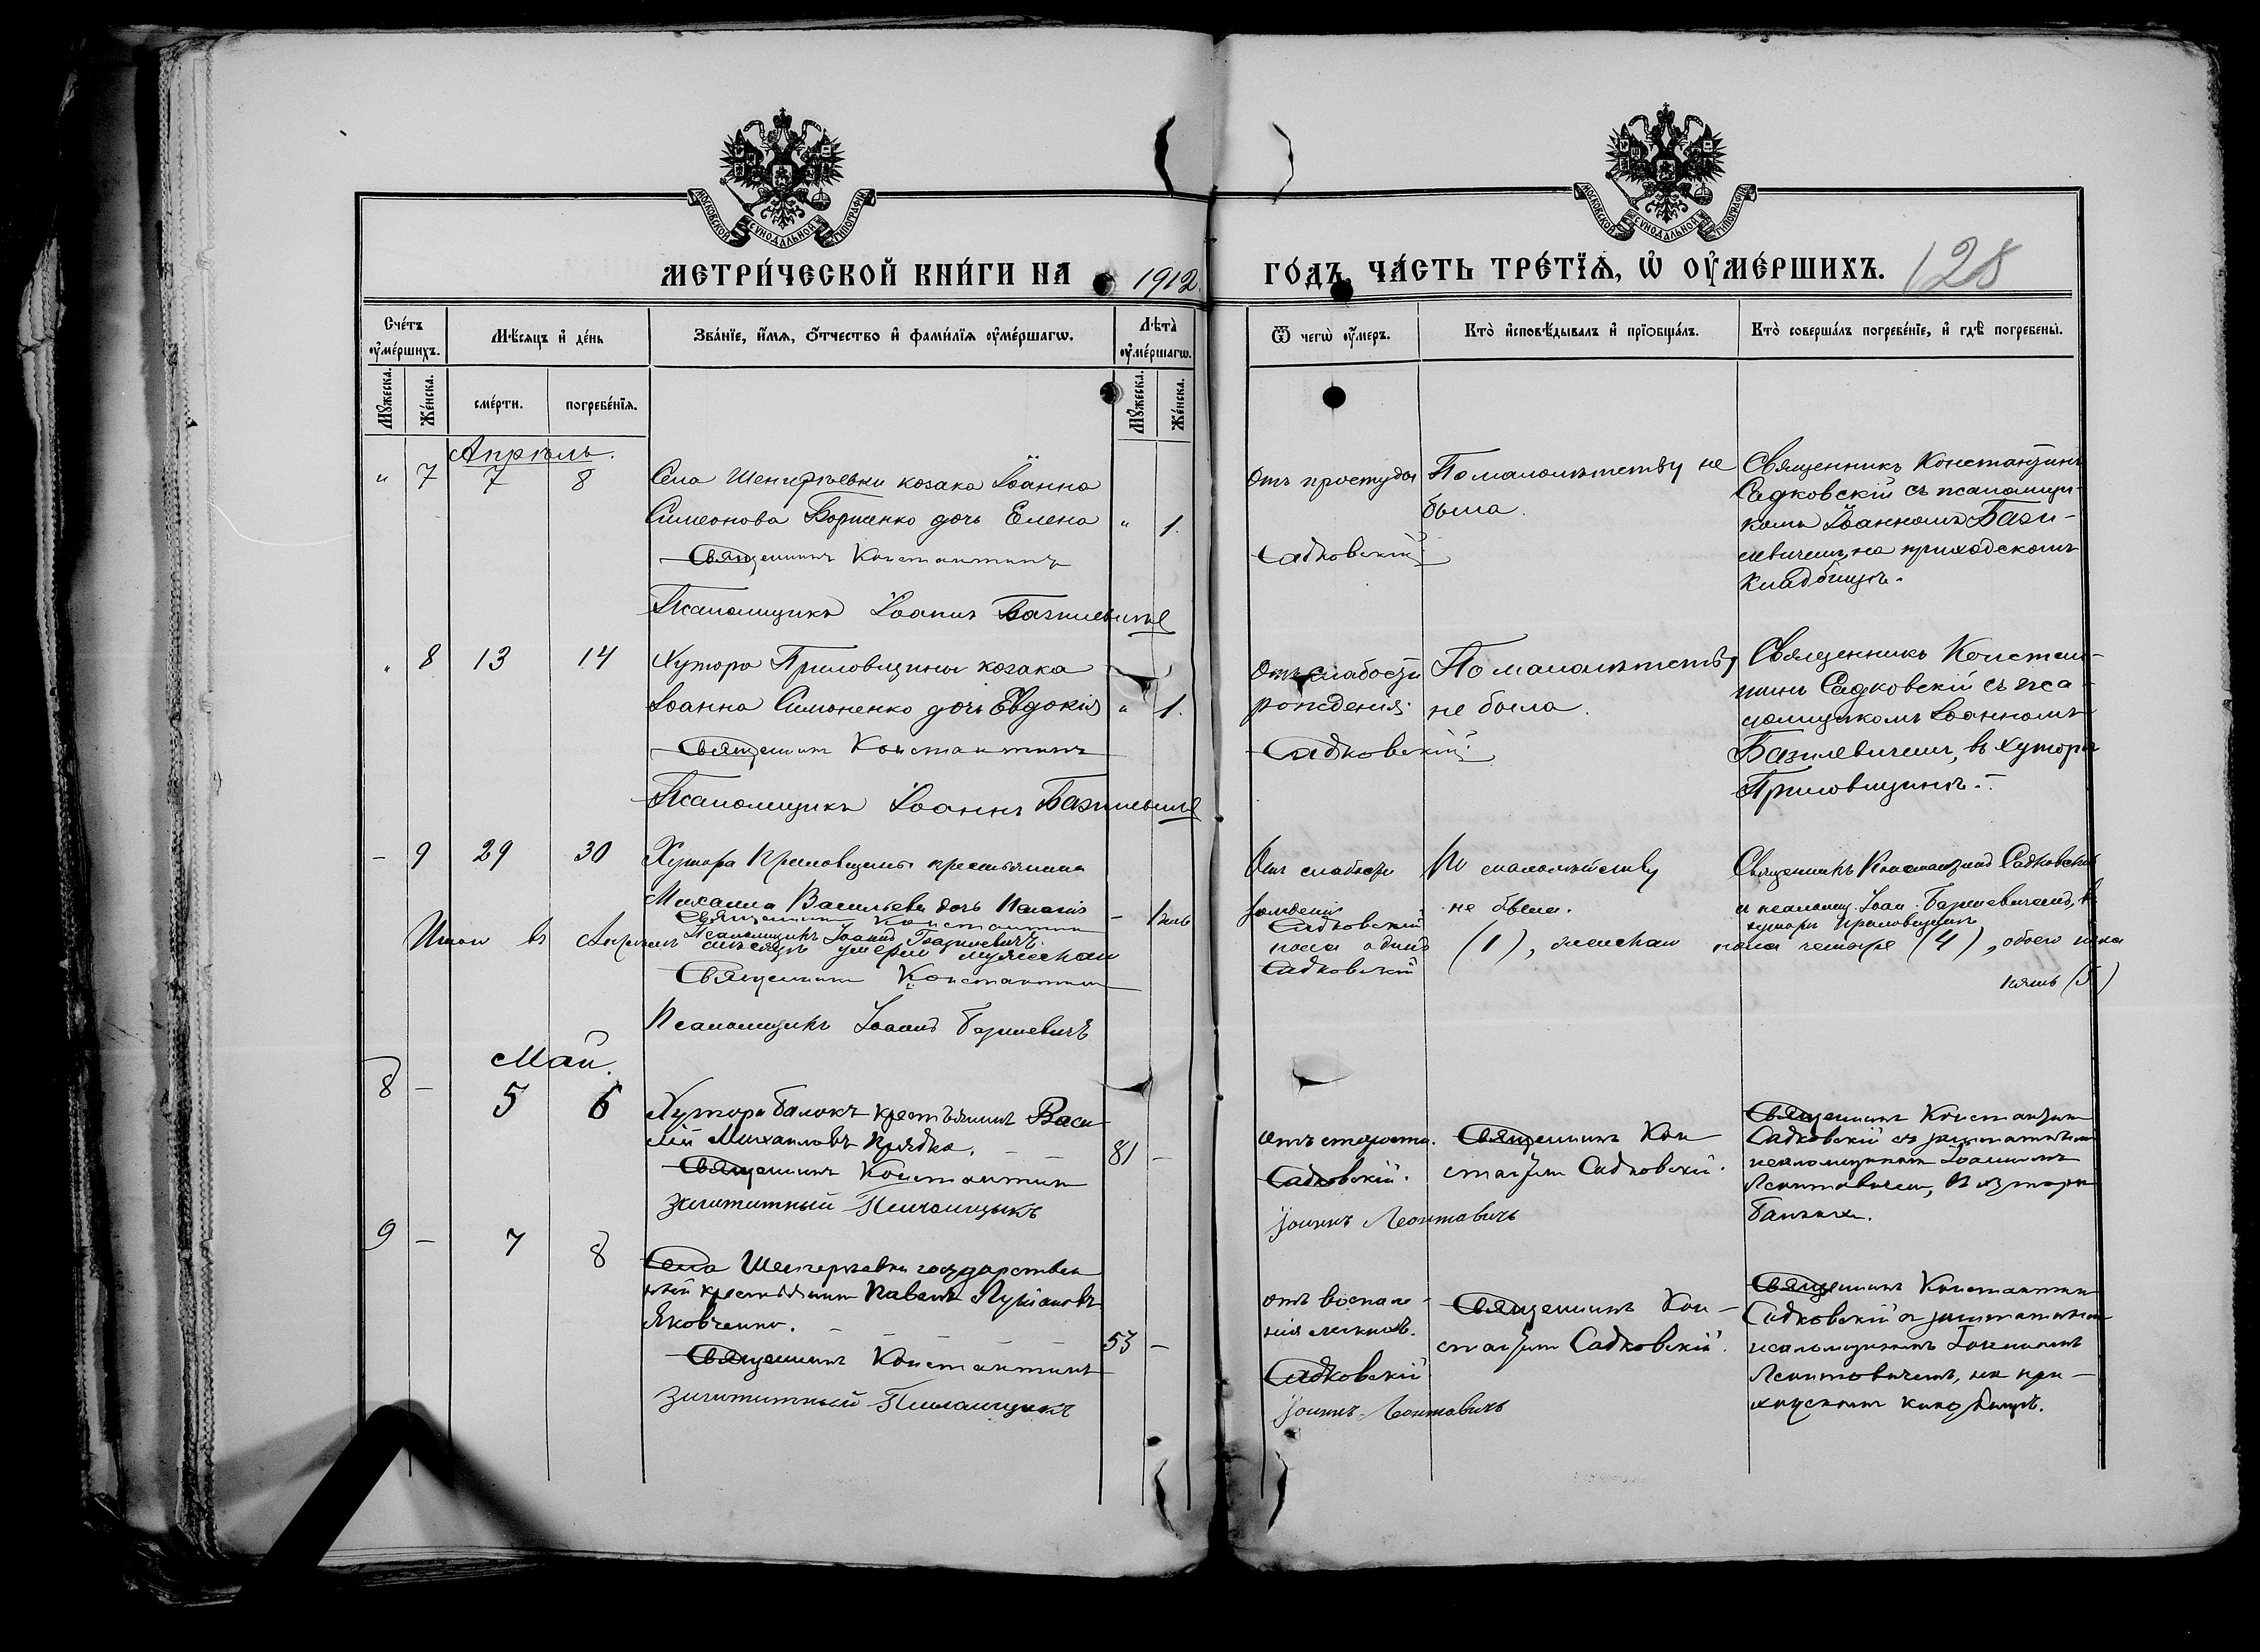 МОСКОВСКОЙ СѴНОДАЛЬНОЙ ТИПОГРАФІИ
МОСКОВСКОЙ СѴНОДАЛЬНОЙ ТИПОГРАФІИ
МЕТРИ́ЧЕСКОЙ КНИ́ГИ НА 1912 ГО́ДЪ, ЧА́СТЬ ТРЕ́ТЇѦ, Ѽ ОУ҆МЕ́РШИХЪ. 128
Сче́тъ оу҆ме́ршихъ.
Мѣ́сяцъ и҆ де́нь
Зва́нїе, и҆́мѧ, ѻ҆́тчество и҆ фами́лїѧ оу҆ме́ршагѡ.
Лѣ́та оу҆ме́ршагѡ.
Ѿ чегѡ̀ оу҆́меръ.
Кто̀ и҆сповѣ́дывалъ и҆ прїѡбща́лъ.
Кто̀ соверша́лъ погребе́нїе, и҆ гдѣ̀ погребены̀.
Мꙋ́жеска.
Же́нска.
сме́рти.
погребе́нїѧ.
Мꙋ́жеска.
Же́нска.
Апрѣль.
" 7 7 8
Села Шенгерѣевки козака Іоанна
Симеонова Борисенко дочь Елена " 1.
Священникъ Константинъ
Псаломщикъ Іоаннъ Базилевичъ
Отъ простуды
Садковскій
По малолѣтству не
была.
Священникъ Константинъ
Садковскій съ псаломщи-
комъ Іоанномъ Бази-
левичемъ, на приходскомъ
кладбищѣ.
" 8 13 14
Хутора Приловщины козака
Іоанна Симоненко дочь Евдокія " 1.
Священникъ Константинъ
Псаломщикъ Іоаннъ Базилевичъ
Отъ слабости
рожденія.
Садковскій
По малолѣтству
не была.
Священникъ Констан-
тинъ Садковскій съ пса-
ломщикомъ Іоанномъ
Базилевичемъ, въ хуторѣ
Приловщинѣ.
- 9 29 30
Хутора Приловщины крестьянина
Михаила Васильева дочь Пелагія -
Священникъ Константинъ
Псаломщикъ Іоаннъ Базилевичъ.
Отъ слабости
рожденія
Садковскій
По малолѣтству
не была.
Священникъ Константинъ Садковскій
и псаломщ. Іоан. Базилевичемъ, въ
хуторѣ Приловщинѣ
Итого въ Апрѣлѣ мѣсяцѣ умерло мужескаго пола одинъ (1), женскаго пола четыре (4), обоего пола
пять (5)
Священникъ Константинъ Садковскій
Псаломщикъ Іоаннъ Базилевичъ
Май.
8 - 5 6
Хутора Балокъ крестьянинъ Васи-
лій Михаиловъ Прядка. 81 -
Священникъ Константинъ
заштатный Псаломщикъ
отъ старости.
Садковскій.
Іоаннъ Леонтовичъ
Священникъ Кон-
стантинъ Садковскій.
Священникъ Константинъ
Садковскій съ заштатнымъ
псаломщикомъ Іоанномъ
Леонтовичемъ, въ хуторѣ
Балкахъ.
9 - 7 8
Села Шенгерѣевки государствен-
ный крестьянинъ Павелъ Лукіановъ
Яковченко. 53 -
Священникъ Константинъ
заштатный Псаломщикъ
отъ воспале-
нія легкихъ.
Садковскій
Іоаннъ Леонтовичъ
Священникъ Кон-
стантинъ Садковскій.
Священникъ Константинъ
Садковскій съ заштатнымъ
псаломщикомъ Іоанномъ
Леонтовичемъ, на при-
ходскомъ кладбищѣ.